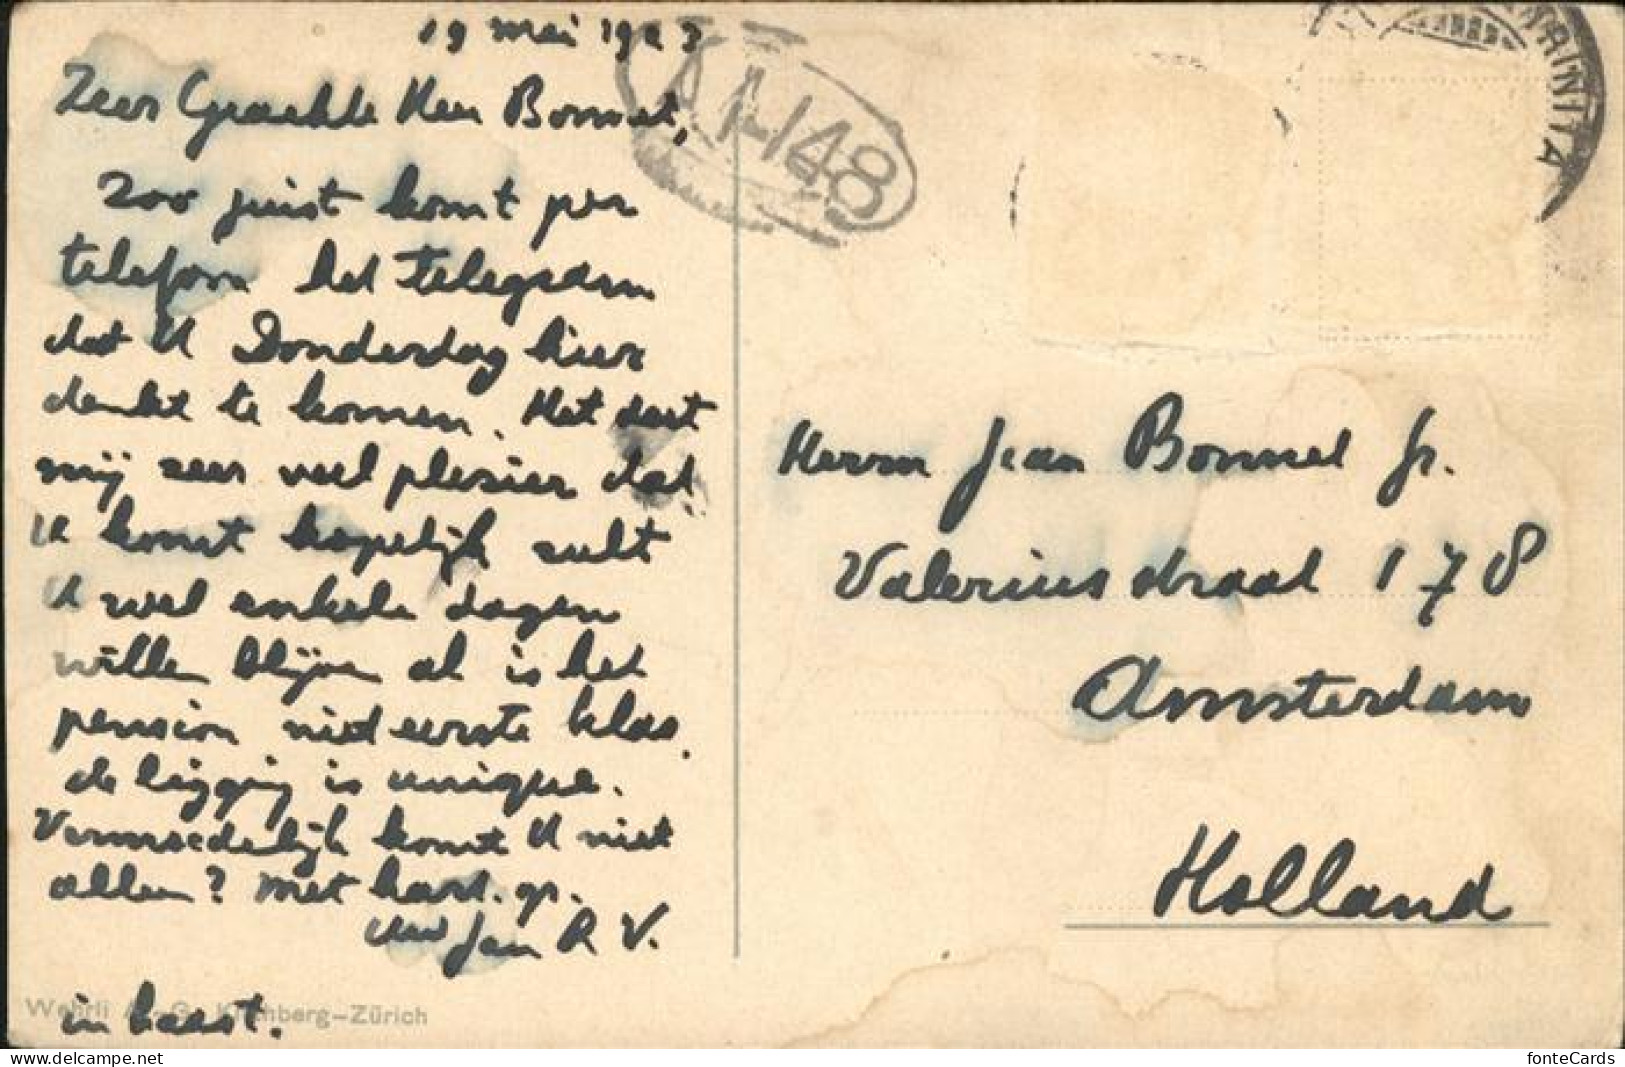 19 mei 1923
Zeer Geachte Heer Bonnet,
Zoo juist komt per
telefoon het telegram
dat U Donderdag hier
denkt te komen. Het doet
mij zeer veel plezier dat
U komt hopelijk zult
U wel enkele dagen
willen blijven al is het
pension niet eerste klas.
de ligging is unique.
Vermoedelijk komt U niet
allen? Met hart. gr.
Uw Jan R V.
in haast.
Wehrli A.-G. Kilchberg-Zürich
148
TRINITA
Herrn Jean Bonnet Jr.
Valeriusstraat 178
Amsterdam
Holland
fonteCards
www.delcampe.net